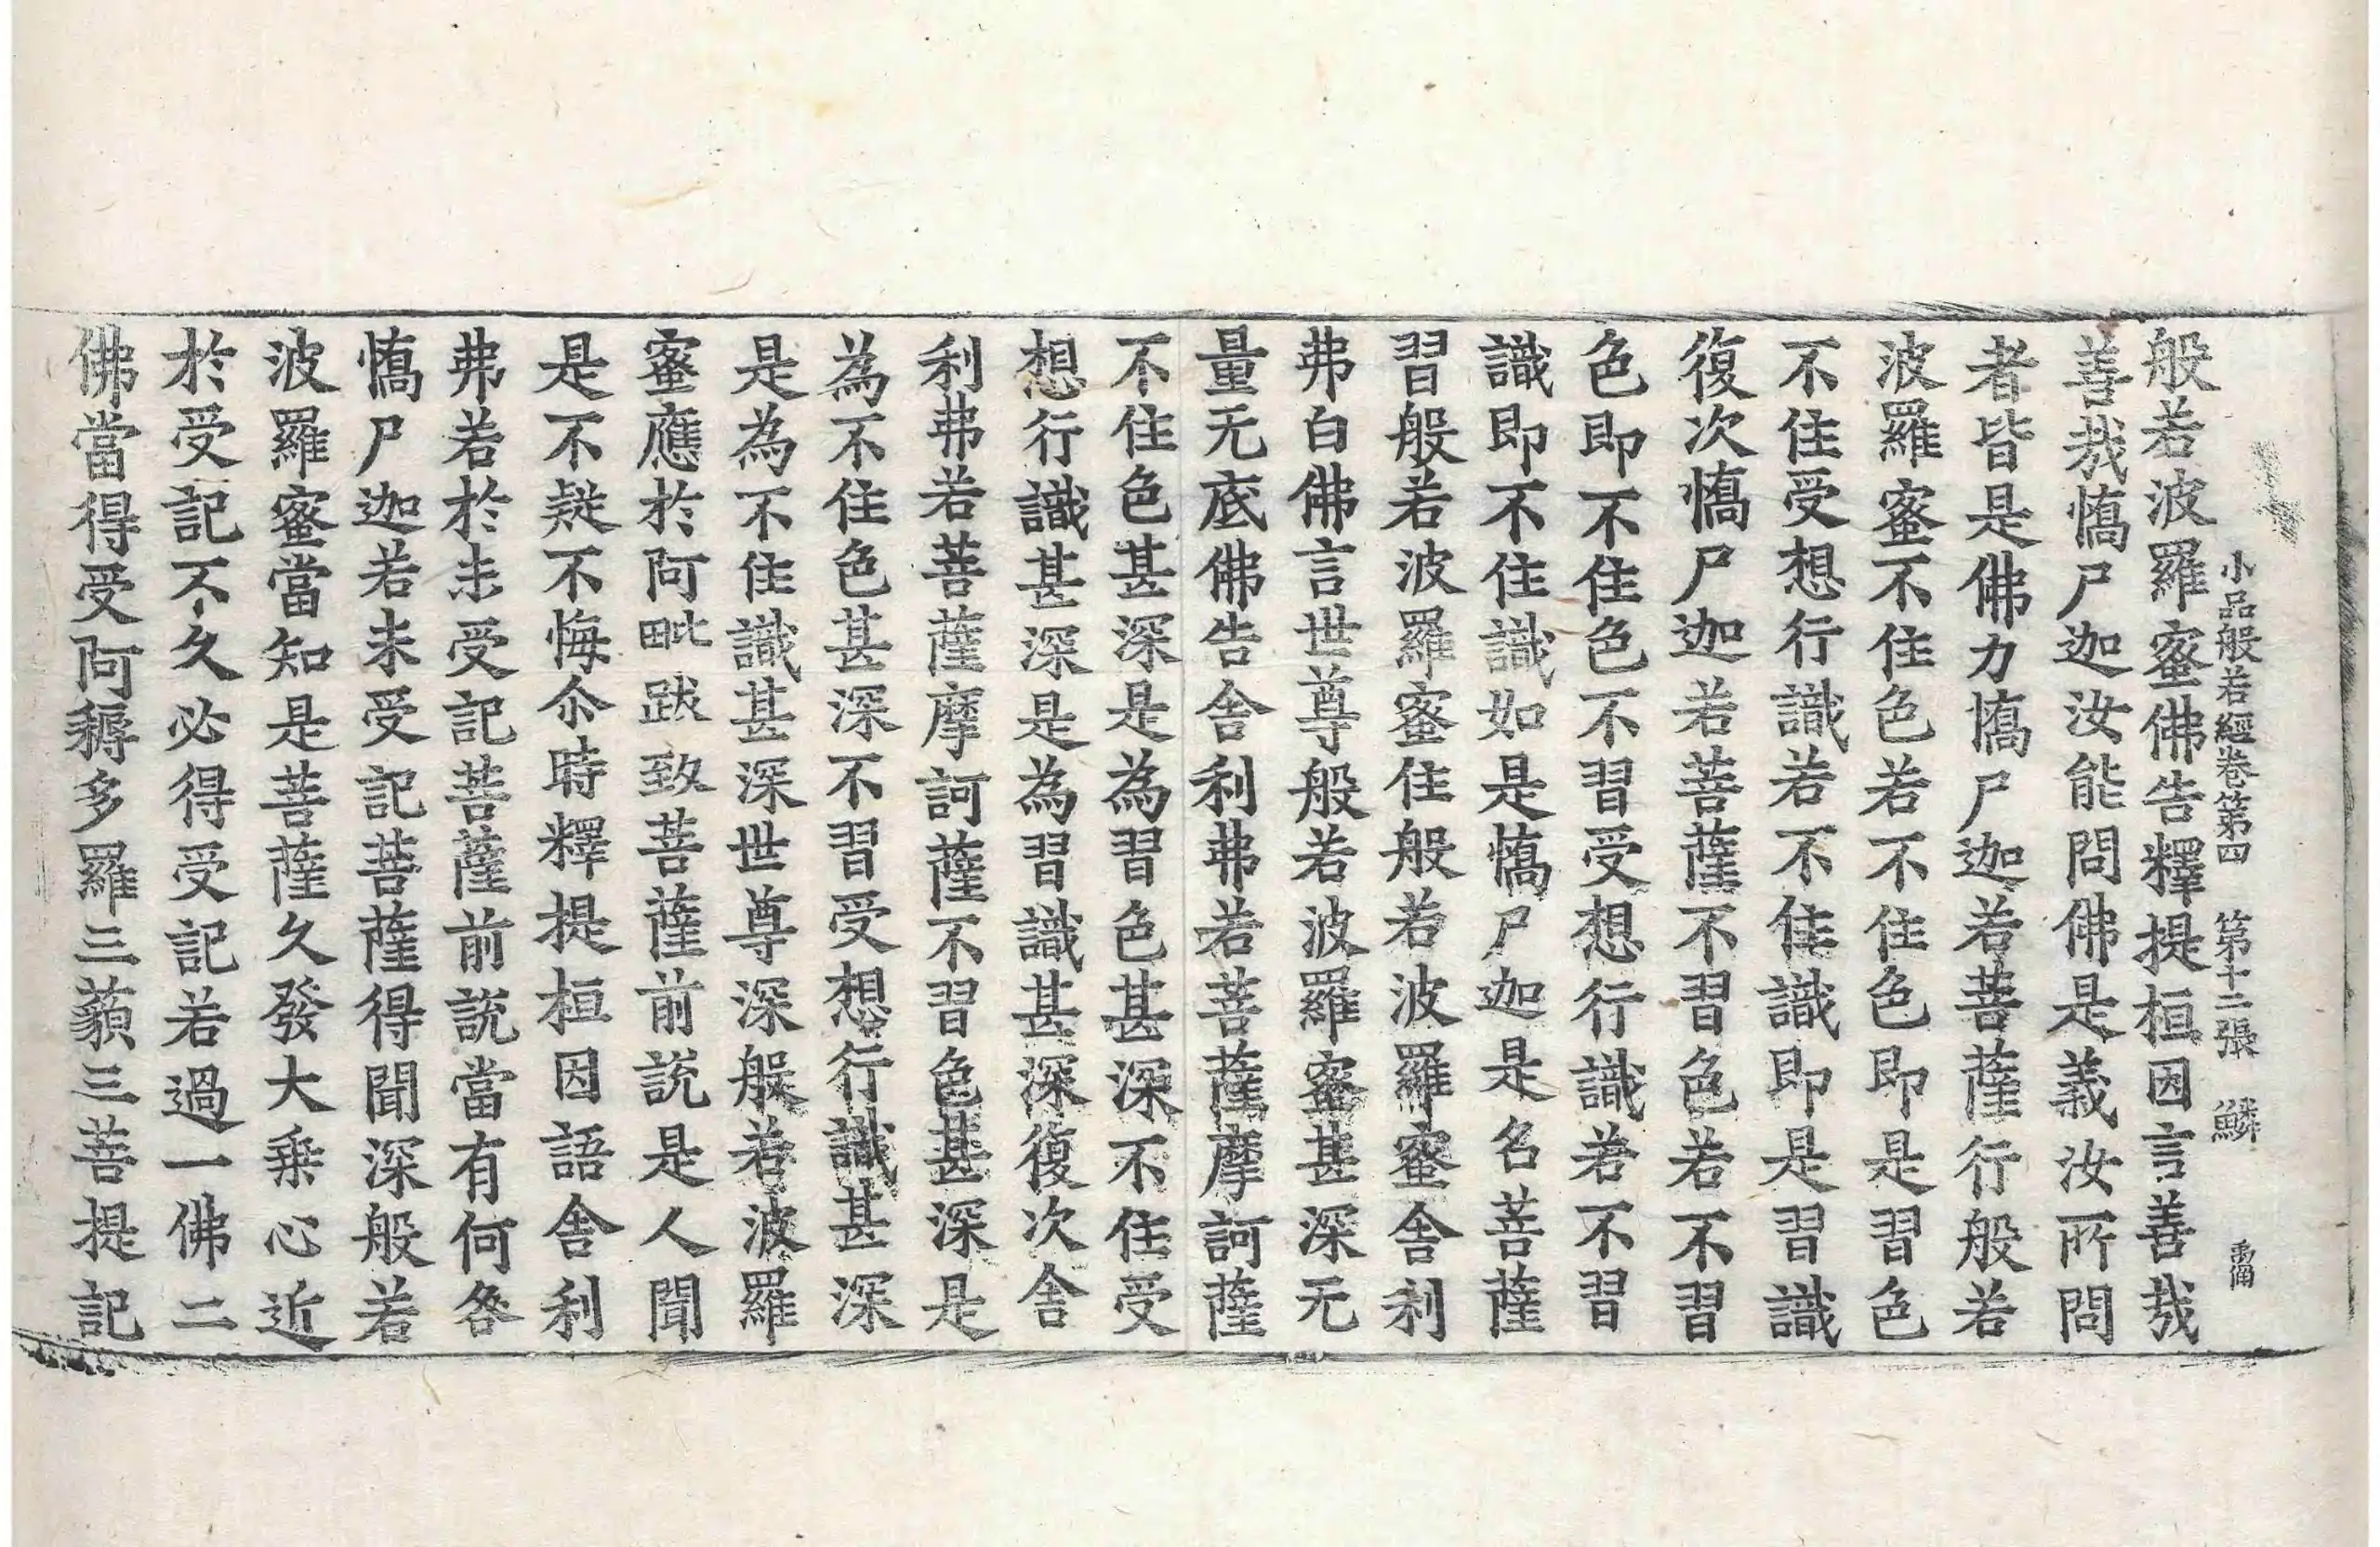 小品般若經卷第四 第十二張 鱗
般若波羅蜜佛告釋提桓因言善哉
善哉憍尸迦汝能問佛是義汝所問
者皆是佛力憍尸迦若菩薩行般若
波羅蜜不住色若不住色即是習色
不住受想行識若不住識即是習識
復次憍尸迦若菩薩不習色若不習
色即不住色不習受想行識若不習
識即不住識如是憍尸迦是名菩薩
習般若波羅蜜住般若波羅蜜舍利
弗白佛言世尊般若波羅蜜甚深无
量无底佛告舍利弗若菩薩摩訶薩
不住色甚深是為習色甚深不住受
想行識甚深是為習識甚深復次舍
利弗若菩薩摩訶薩不習色甚深是
為不住色甚深不習受想行識甚深
是為不住識甚深世尊深般若波羅
蜜應於阿毗跋致菩薩前說是人聞
是不疑不悔尒時釋提桓因語舍利
弗若於未受記菩薩前說當有何咎
憍尸迦若未受記菩薩得聞深般若
波羅蜜當知是菩薩久發大乘心近
於受記不久必得受記若過一佛二
佛當得受阿耨多羅三藐三菩提記